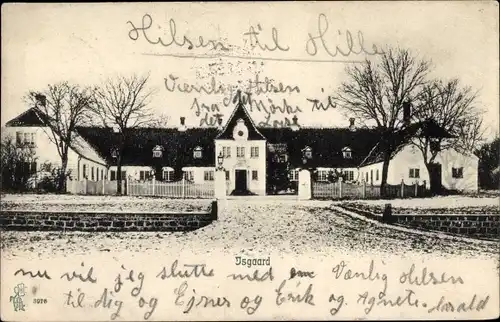 Hilsen til Hille
Venlig Hilsen
fra det Mörke til
det Lyse
Isgaard
nu vil jeg slutte med en Venlig Hilsen
til dig og Ejner og Erik og Agnete. Harald
3976